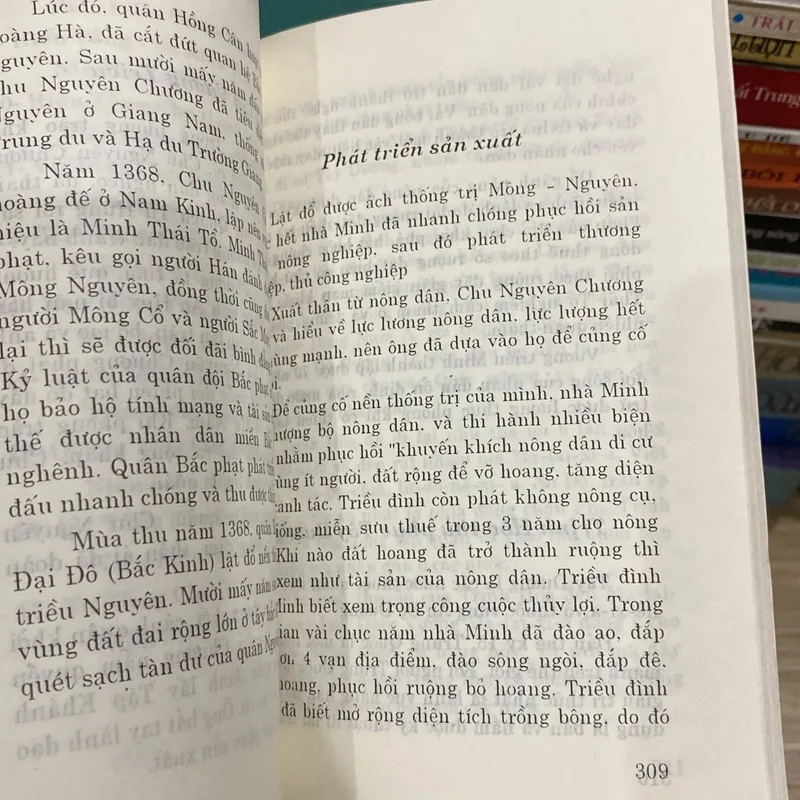 Lúc đó, quân Hồng Cân
oàng Hà, đã cắt đứt quan hệ
guyên. Sau mười mấy năm
hu Nguyên Chương đã tiêu
Nguyên ở Giang Nam, thống
rung du và Hạ du Trường Giang
Năm 1368, Chu Nguyên
hoàng đế ở Nam Kinh, lập nên
hiệu là Minh Thái Tổ. Minh
phạt, kêu gọi người Hán đánh
Mông Nguyên, đồng thời cũng
người Mông Cổ và người Sắc
lại thì sẽ được đối đãi bình
Kỷ luật của quân đội Bắc phạt
họ bảo hộ tính mạng và tài sản
thế được nhân dân miền
nghênh. Quân Bắc phạt phát
đấu nhanh chóng và thu được
Mùa thu năm 1368, quân
Đại Đô (Bắc Kinh) lật đổ nền
triều Nguyên. Mười mấy năm
vùng đất đai rộng lớn ở tây
quét sạch tàn dư của quân
Phát triển sản xuất
Lật đổ được ách thống trị Mông - Nguyên,
hết nhà Minh đã nhanh chóng phục hồi sản
nông nghiệp, sau đó phát triển thương
ệp, thủ công nghiệp
Xuất thân từ nông dân, Chu Nguyên Chương
và hiểu về lực lương nông dân, lực lượng hết
ùng mạnh, nên ông đã dựa vào họ để củng cố
ị.
Để củng cố nền thống trị của mình, nhà Minh
ượng bộ nông dân, và thi hành nhiều biện
nhằm phục hồi "khuyến khích nông dân di cư
ùng ít người, đất rộng để vỡ hoang, tăng diện
anh tác. Triều đình còn phát không nông cụ,
iống, miễn sưu thuế trong 3 năm cho nông
Khi nào đất hoang đã trở thành ruộng thì
xem như tài sản của nông dân. Triều đình
inh biết xem trọng công cuộc thủy lợi. Trong
ian vài chục năm nhà Minh đã đào ao, đắp
ơn 4 vạn địa điểm, đào sông ngòi, đắp đê,
hoang, phục hồi ruộng bỏ hoang. Triều đình
đã biết mở rộng diện tích trồng bông, do đó
309
TRÁI